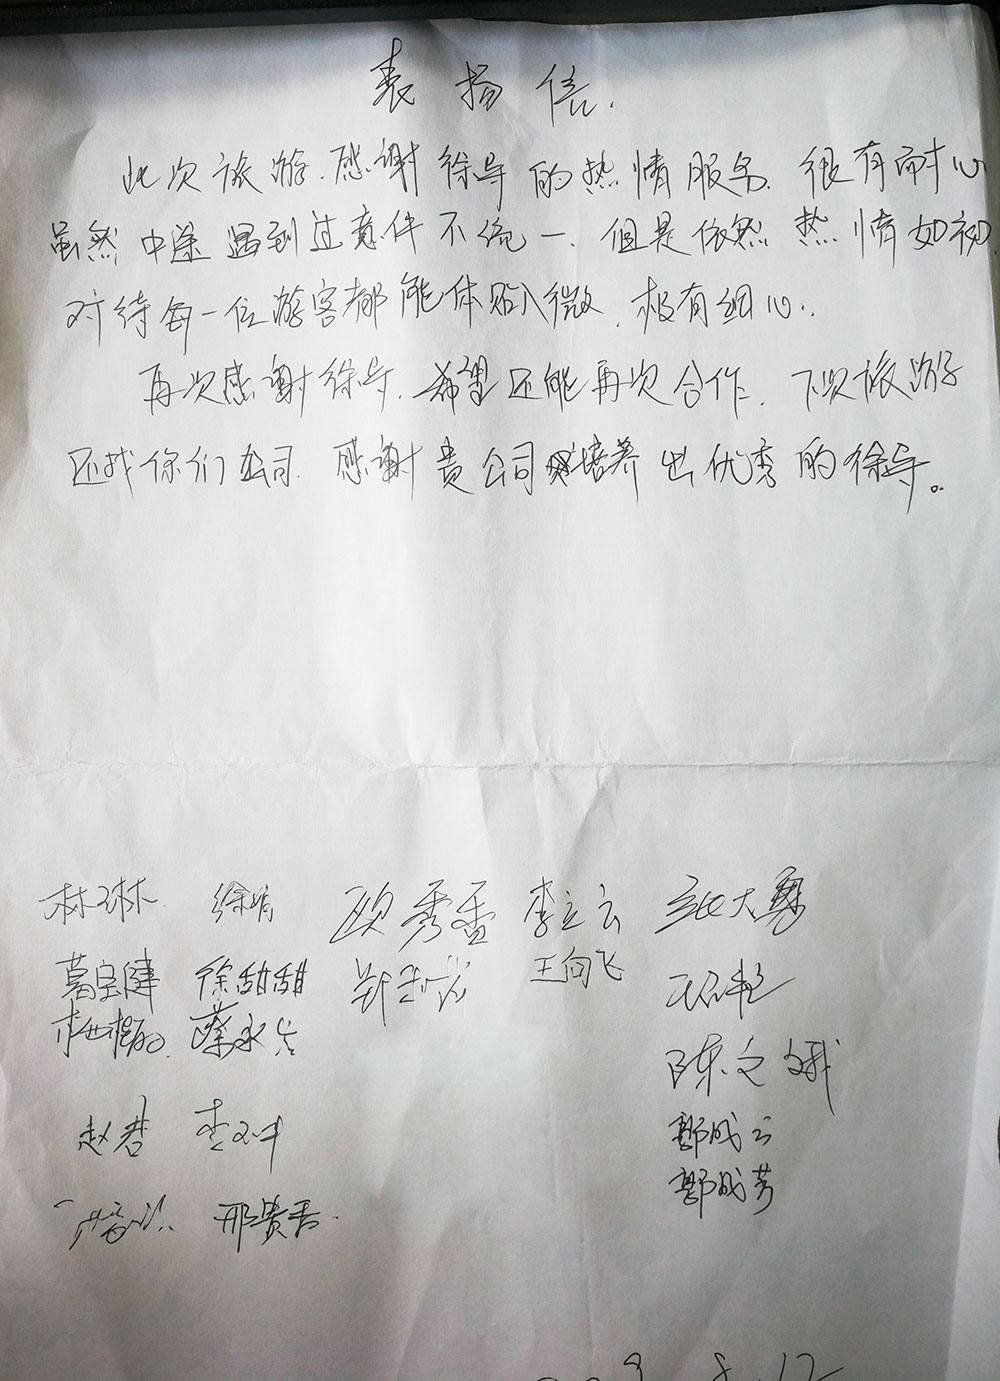 表扬信.
此次旅游.感谢徐导的热情服务.很有耐心
虽然中途遇到过意件不统一.但是依然热情如初.
对待每一位游客都能体贴入微.极有细心.
再次感谢徐导.希望还能再次合作.下次旅游
还找你们公司.感谢贵公司培养出优秀的徐导。
林琳
欧秀香 李立云
葛宝健 徐甜甜 王向飞
陈文娥
赵君
郭成云
郭成芳
邢贵香